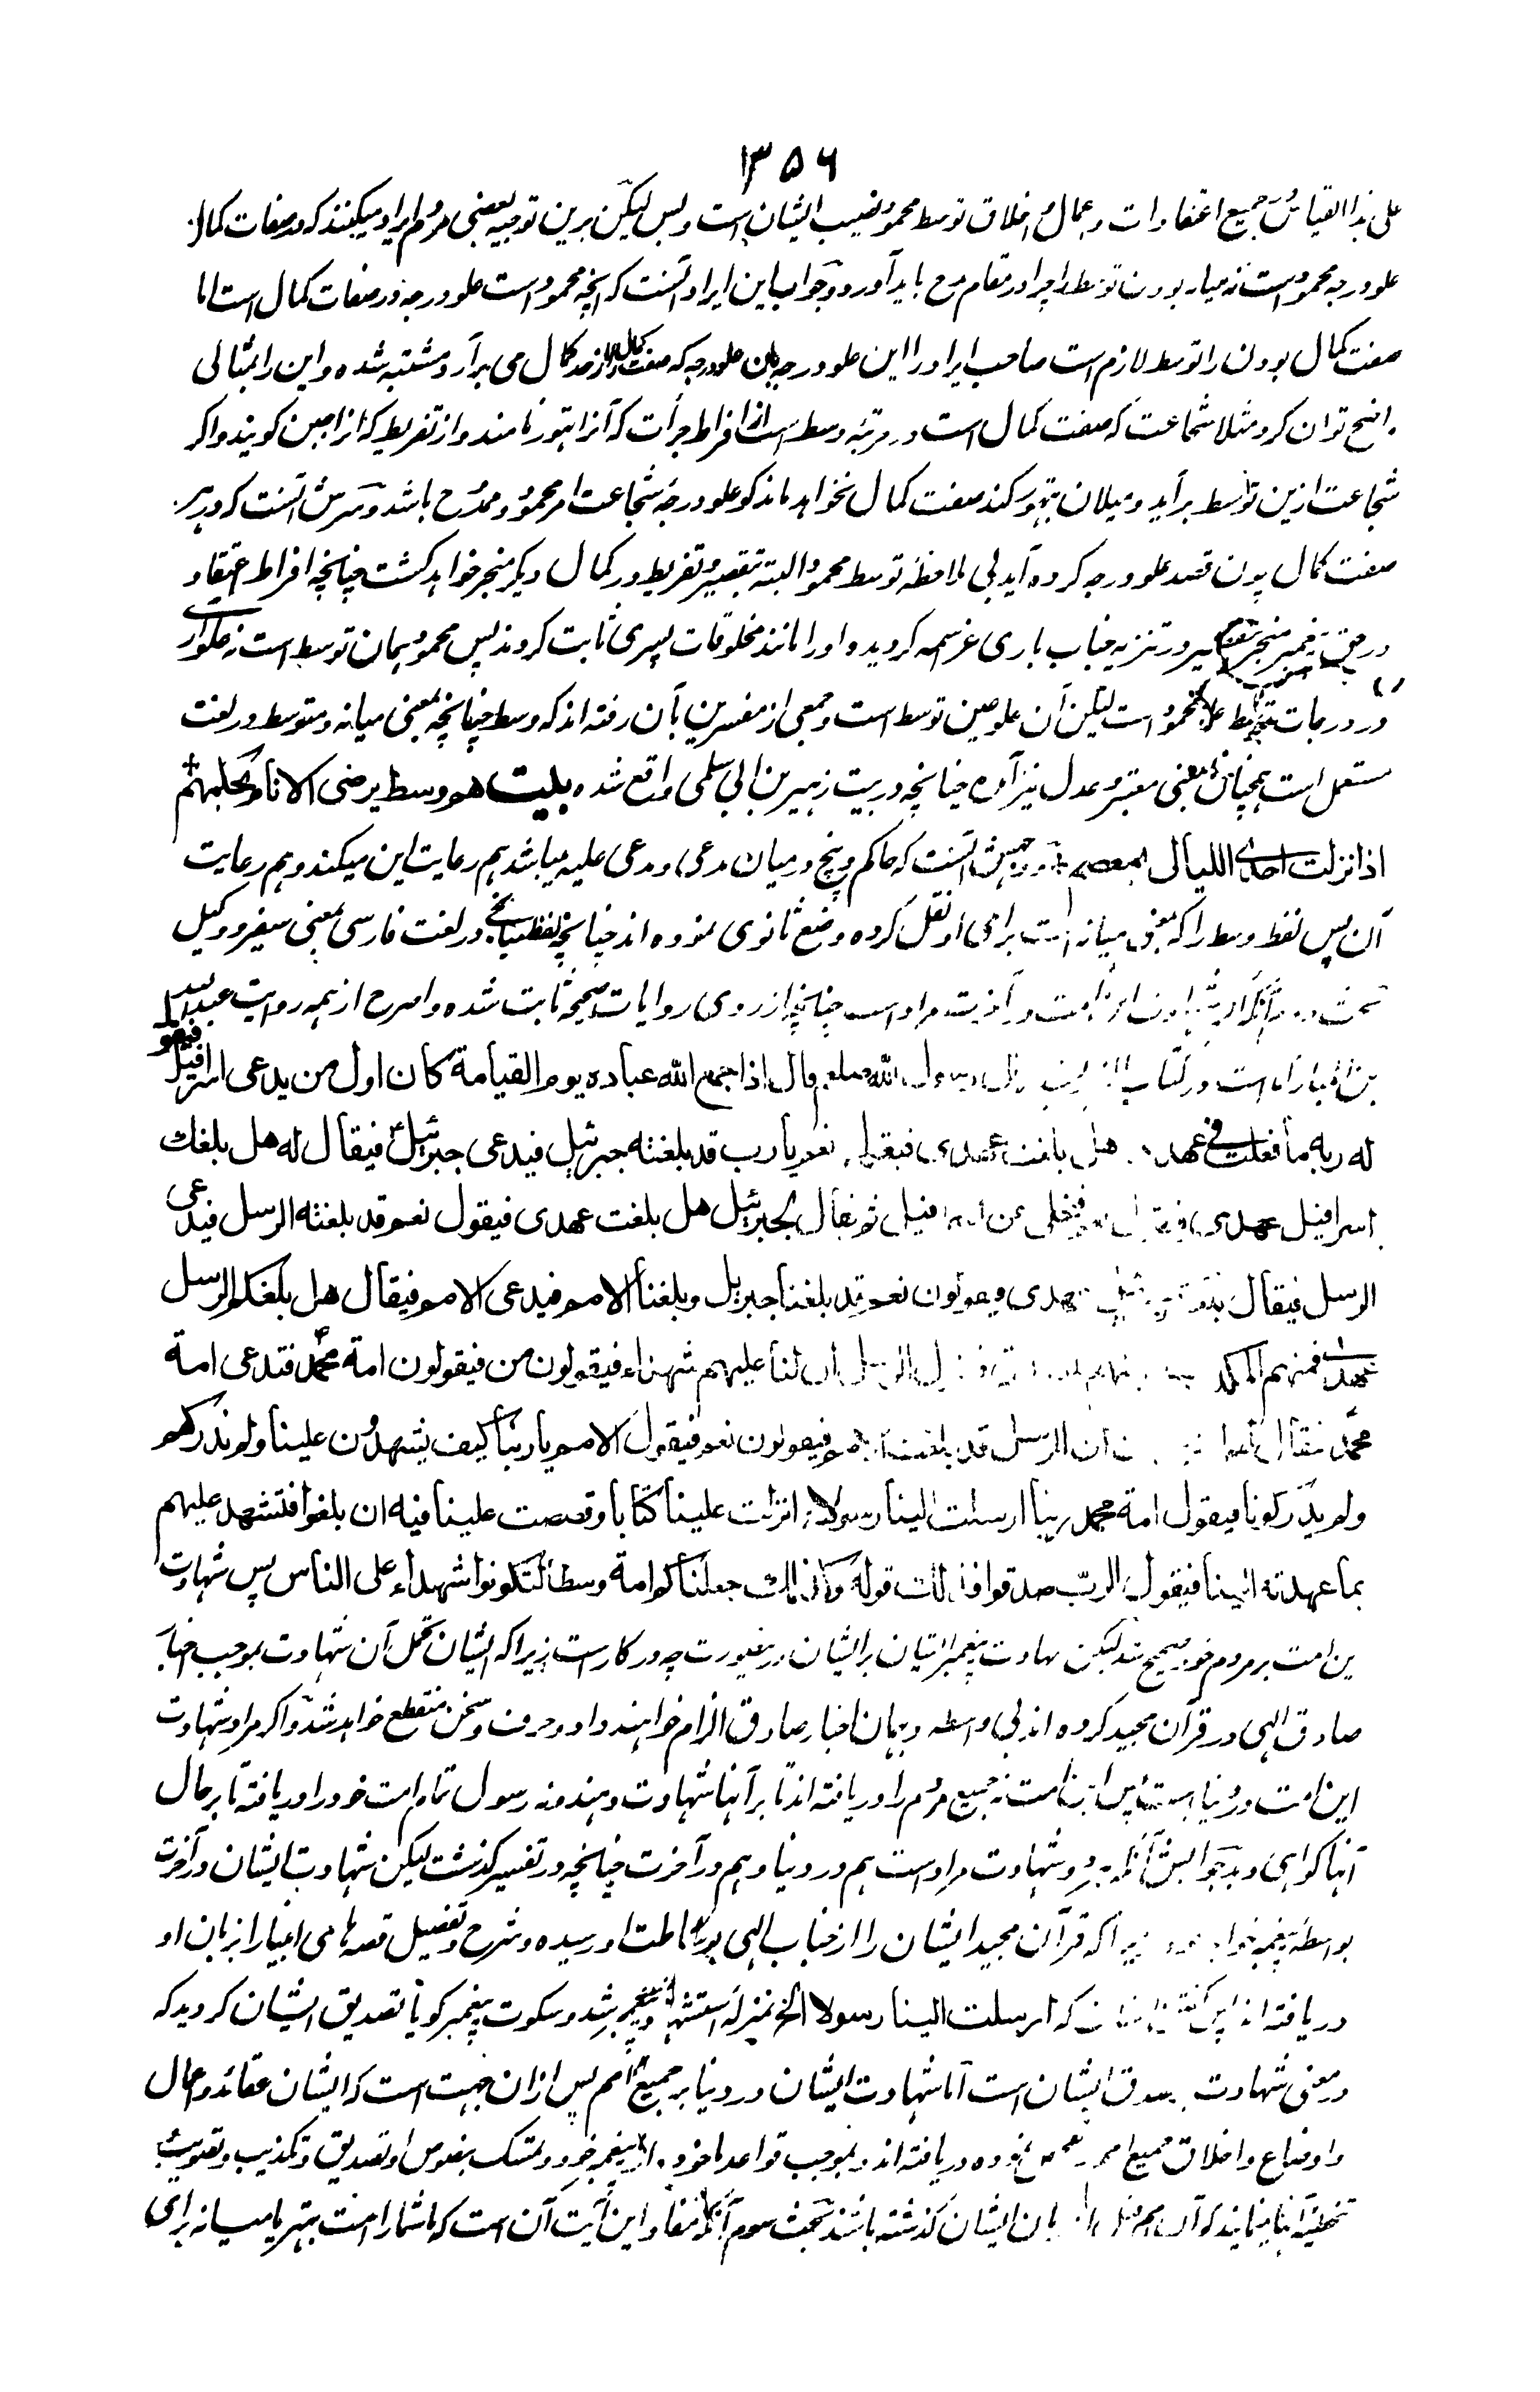 ۳۵۶
علی هذا القیاس در جمیع اعتقادات و اعمال و اخلاق توسط محمود نصیب ایشان است و بس لیکن برین توجیه بعضی مردم ایراد میکنند که در صفات کمال
علو درجه محمود است نه میانه بودن توسط را چرا در مقام مدح باید آورد و جواب این ایراد آنست که آنچه محمود است علو درجه در صفات کمال است اما
صفت کمال بودن را توسط لازم است صاحب ایراد را این علو درجه بآن علو درجه که صفت کمال را از حد کمال می برآرد مشتبه شده و این را بمثالی
واضح توان کرد مثلا شجاعت که صفت کمال است در مرتبه وسط است از افراط جرأت که آنرا تهور نامند و از تفریط که آنرا جبن گویند و اگر
شجاعت ازین توسط برآید و میلان بتهور کند صفت کمال نخواهد ماند گو علو درجه شجاعت امر محمود و ممدوح باشد و سرش آنست که در هر
صفت کمال چون قصد علو درجه کرده آید بی ملاحظه توسط محمود البته بتقصیر و تفریط در کمال دیگر منجر خواهد گشت چنانچه افراط اعتقاد
در حق پیغمبر منجر بتقصیر در تنزیه جناب باری عز اسمه گردیده و او را مانند مخلوقات پسری ثابت کردند پس محمود همان توسط است نه علو آری
در درجات توسط علو محمود است لیکن آن علو عین توسط است و جمعی از مفسرین بآن رفته اند که وسط چنانچه بمعنی میانه و متوسط در لغت
مستعمل است همچنان بمعنی معتبر و عدل نیز آمده چنانچه در بیت زهیر بن ابی سلمی واقع شده بیت هم وسط یرضی الانام بحکمهم
اذا نزلت احدی اللیالی بمعظم و وجهش آنست که حاکم و پنچ در میان مدعی و مدعی علیه میباشد هم رعایت این میکند و هم رعایت
آن پس لفظ وسط را که بمعنی میانه است برای او نقل کرده وضع ثانوی نموده اند چنانچه لفظ میانجی در لغت فارسی بمعنی سفیر و وکیل
بحث دوم آنکه از روایات صحیحه ثابت شده و اصرح از همه روایت عبد الله
بن المبارک است در کتاب رسول الله صلعم قال اذا جمع الله عباده یوم القیامة کان اول من یدعی اسرافیل فیقول
له ربه ما فعلت فی عهدی هل بلغت عهدی فیقول نعم یا رب قد بلغته جبرئیل فیدعی جبرئیل فیقال له هل بلغک
اسرافیل عهدی فیقول نعم فیخلی عن اسرافیل ثم یقال لجبرئیل هل بلغت عهدی فیقول نعم قد بلغته الرسل فیدعی
الرسل فیقال عهدی فیقولون نعم قد بلغنا جبریل و بلغنا الامم فیدعی الامم فیقال هل بلغکم الرسل
عهدی فمنهم المکذب فیقول الرسل ان لنا علیهم شهداء فیقولون من فیقولون امة محمد فتدعی امة
محمد فیقال ان الرسل قد بلغت فیقولون نعم فیقول الامم یا ربنا کیف یشهدون علینا ولم ندرکهم
ولم یدرکونا فیقول امة محمد ربنا ارسلت الینا رسولا و انزلت علینا کتابا و قصصت علینا فیه ان بلغوا فنشهد علیهم
بما عهدته الینا فیقول الرب صدقوا فذلک قوله وکذلک جعلناکم امة وسطا لتکونوا شهداء علی الناس پس شهادت
این امت بر مردم خود صحیح شد لیکن شهادت پیغمبر ایشان بر ایشان درینصورت چه در کار است زیرا که ایشان تحمل آن شهادت بموجب اخبار
صادق الهی در قرآن مجید کرده اند بی واسطه و بهمان اخبار صادق الزام خواهند داد و حرف و سخن منقطع خواهد شد و اگر مراد شهادت
این امت در دنیا است پس این امت نه جمیع مردم را دریافته اند تا بر آنها شهادت دهند و نه رسول تمام امت خود را دریافته تا بر حال
آنها گواهی دهد جوابش آنکه هر دو شهادت مراد است هم در دنیا و هم در آخرت چنانچه در تفسیر گذشت لیکن شهادت ایشان در آخرت
بواسطه پیغمبر خواهد بود زیرا که قرآن مجید ایشان را از جناب الهی بوساطت او رسیده و شرح و تفصیل قصه های انبیا از زبان او
دریافته اند پس گفتن ایشان که ارسلت الینا رسولا الخ بمنزله استشهاد از پیغمبر شد و سکوت پیغمبر گویا تصدیق ایشان گردید که
در معنی شهادت بصدق ایشان است اما شهادت ایشان در دنیا بر جمیع امم پس ازان جهت است که ایشان عقائد و اعمال
و اوضاع و اخلاق جمیع امم نموده دریافته اند و بموجب قواعد ماخوذه از پیغمبر خود و تمسک بنصوص او تصدیق و تکذیب و تصویب و
تخطیه آنها مینمایند گو آن امم قبل از زمان ایشان گذشته باشند بحث سوم آنکه مفاد این آیت آن است که ما شما را امت بهتر یا میانه برای